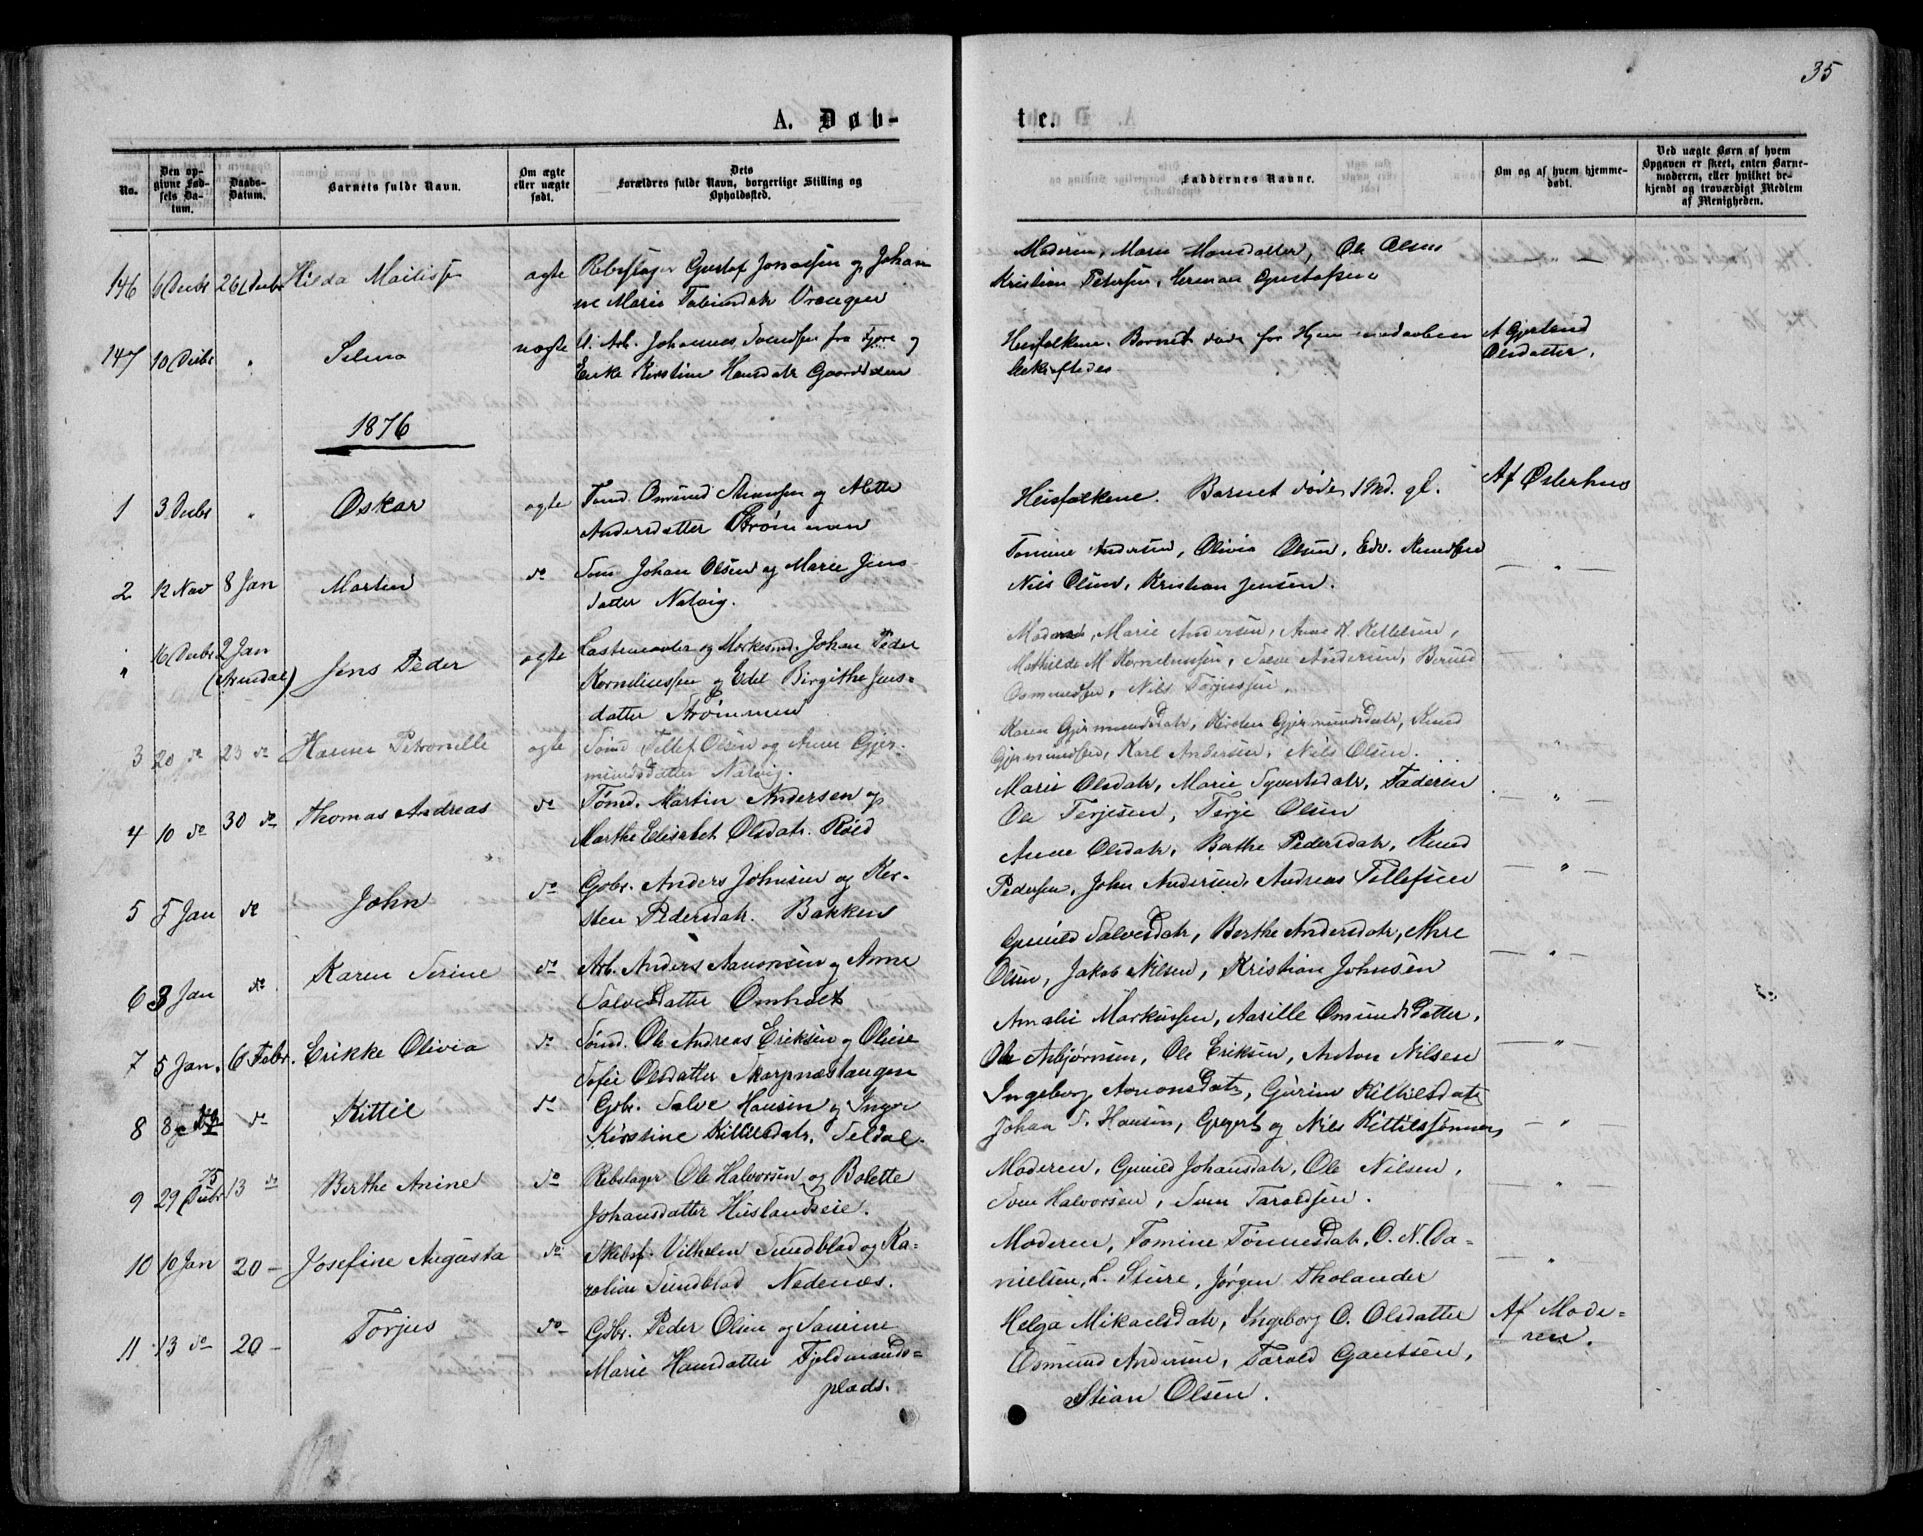 35
A. Døb-
te.
No.
Den op-
givne Fød-
sels Da-
tum.
Daabs-
Datum.
Barnets fulde Navn.
Om ægte
eller uægte
født.
Dets
Forældres fulde Navn, borgerlige Stilling og
Opholdssted.
Faddernes Navne.
Om og af hvem hjemme-
døbt.
Ved uægte Børn af hvem
Opgaven er skeet, enten Barne-
moderen, eller hvilket be-
kjendt og troværdigt Medlem
af Menigheden.
146 6 Decbr 26 Decbr Hilda ægte Rebslager Gustaf Jonassen og Johan
ne Marie Tobiasdatr Vrengen
Moderen, Marie Hansdatter, Ole Olsen
Kristian Petersen, Herman Gustafsen
147 10 Decbr " Selma uægte U. Arb. Johannes Svendsen fra Fjære og
Enke Kirstine Hansdatr
Husfolkene. Barnet døde før Hjemmedaaben
bekræftedes.
A Gjertrud
Olsdatter.
1876
1 3 Decbr " Oskar ægte Tømd. Osmund og Mette
Andersdatter Strømmen
Husfolkene. Barnet døde 1 Md. gl.
Af Østerhus
2 12 Nov 8 Jan Martin do Tømd Johan Olsen og Marie Jens
datter Natvig.
Tomine Andersen, Olivia Olsen, Edv. Knudsen
Nils Olsen, Kristian Jensen.
— " —
" 16 Decbr 2 Jan
(Arendal) Jens Peder ægte Lastemaaler og Johan Peder
Korneliussen og Edel Birgithe Jens-
datter Strømmen
Moderen, Marie Andersen, Anne K. Kittelsen,
Mathilde M Korneliussen, Salve Andersen, Berund
Osmundsen, Nils Torjussen.
"
3 20 do 23 do Hanna Petronille ægte Tømd Tellef Olsen og Anne Gjer-
mundsdatter Natvig.
Karen Gjermundsdatr, Kirsten Gjermundsdatr, Knud
Gjermundsen, Karl Andersen, Nils Olsen.
4 10 do 30 do Thomas Andreas do Tømd. Martin Andersen og
Marthe Elisabet Olsdatr. Røed
Marie Olsdatr, Marie Syvertsdatr, Faderen
Ole Terjesen, Terje Olsen
— " —
5 5 Jan do John do Gbr. Anders Johnsen og Kir-
sten Pedersdatr. Bakken
Anne Olsdatr, Berthe Pedersdatr, Knud
Pedersen, John Andersen, Andreas Tellefsen
" —
6 3 Jan do Karen Serine do Arb. Anders Aanonsen og Anne
Salvesdatter Omholt
Gunild Salvesdatr, Berthe Andersdatr, Are
Olsen, Jakob Nilsen, Kristian Johnsen
— " —
7 5 Jan. 6 Febr. Erikke Olivia do Tømd. Ole Andreas Eriksen og Olene
Sofie Olsdatter Skarpnæstangen
Amalie Markussen, Aasille Osmundsdatter,
Ole Asbjørnsen, Ole Eriksen, Anton Nilsen
— " —
8 8 do Kittil do Gbr. Salve Hansen og Inger
Kirstine Kittilsdatr. Seldal.
Ingeborg Aanonsdatr, Gurine Kittilsdatr
Johan S. Hansen, Gregert og Nils Kittilssønner,
— " —
9 29 Decbr 75 13 do Berthe Anine do Rebslager Ole Halvorsen og Bolette
Johansdatter Huslandseie.
Moderen, Gunild Johansdatr, Ole Nilsen,
Sven Halvorsen, Sven Taraldsen.
— " —
10 10 Jan 20 — Josefine Augusta do Skibsf. Vilhelm Sundblad og Ka-
roline Sundblad Nedenæs.
Moderen, Tomine Tønnesdatr, O. N. Da-
nielsen, L. Sture, Jørgen Tholander
— " —
11 13 do 20 — Torjus do Gbr. Peder Olsen og Samine
Marie Hansdatter Fjeldmands=
plads.
Helga Mikaelsdatr, Ingeborg O. Olsdatter
Osmund Andersen, Tarald Gautsen,
Stian Olsen.
Af Mode=
ren.